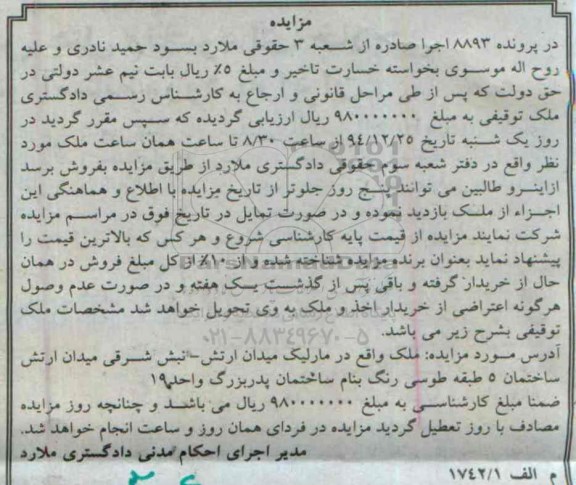 مزایده
در پرونده ۸۸۹۳ اجرا صادره از شعبه ۳ حقوقی ملارد بسود حمید نادری و علیه
روح اله موسوی بخواسته خسارت تاخیر و مبلغ ۵٪ ریال بابت نیم عشر دولتی در
حق دولت که پس از طی مراحل قانونی و ارجاع به کارشناس رسمی دادگستری
ملک توقیفی به مبلغ ۹۸۰۰۰۰۰۰۰۰ ریال ارزیابی گردیده که سپس مقرر گردید در
روز یک شنبه تاریخ ۹۴/۱۲/۲۵ از ساعت ۸/۳۰ تا ساعت همان ساعت ملک مورد
نظر واقع در دفتر شعبه سوم حقوقی دادگستری ملارد از طریق مزایده بفروش برسد
ازاینرو طالبین می توانند پنج روز جلوتر از تاریخ مزایده با اطلاع و هماهنگی این
اجراء از ملک بازدید نموده و در صورت تمایل در تاریخ فوق در مراسم مزایده
شرکت نمایند مزایده از قیمت پایه کارشناسی شروع و هر کس که بالاترین قیمت را
پیشنهاد نماید بعنوان برنده مزایده شناخته شده و از ۱۰٪ از کل مبلغ فروش در همان
حال از خریدار گرفته و باقی پس از گذشت یک هفته و در صورت عدم وصول
هرگونه اعتراضی از خریدار اخذ و ملک به وی تحویل خواهد شد مشخصات ملک
توقیفی بشرح زیر می باشد.
۰۲۱-۸۸۳۴۹۶۷۰-۵
آدرس مورد مزایده: ملک واقع در مارلیک میدان ارتش-نبش شرقی میدان ارتش
ساختمان ۵ طبقه طوسی رنگ بنام ساختمان پدربزرگ واحد۱۹
ضمنا مبلغ کارشناسی به مبلغ ۹۸۰۰۰۰۰۰۰۰ ریال می باشد و چنانچه روز مزایده
مصادف با روز تعطیل گردید مزایده در فردای همان روز و ساعت انجام خواهد شد.
مدیر اجرای احکام مدنی دادگستری ملارد
م الف ۱۷۴۲/۱